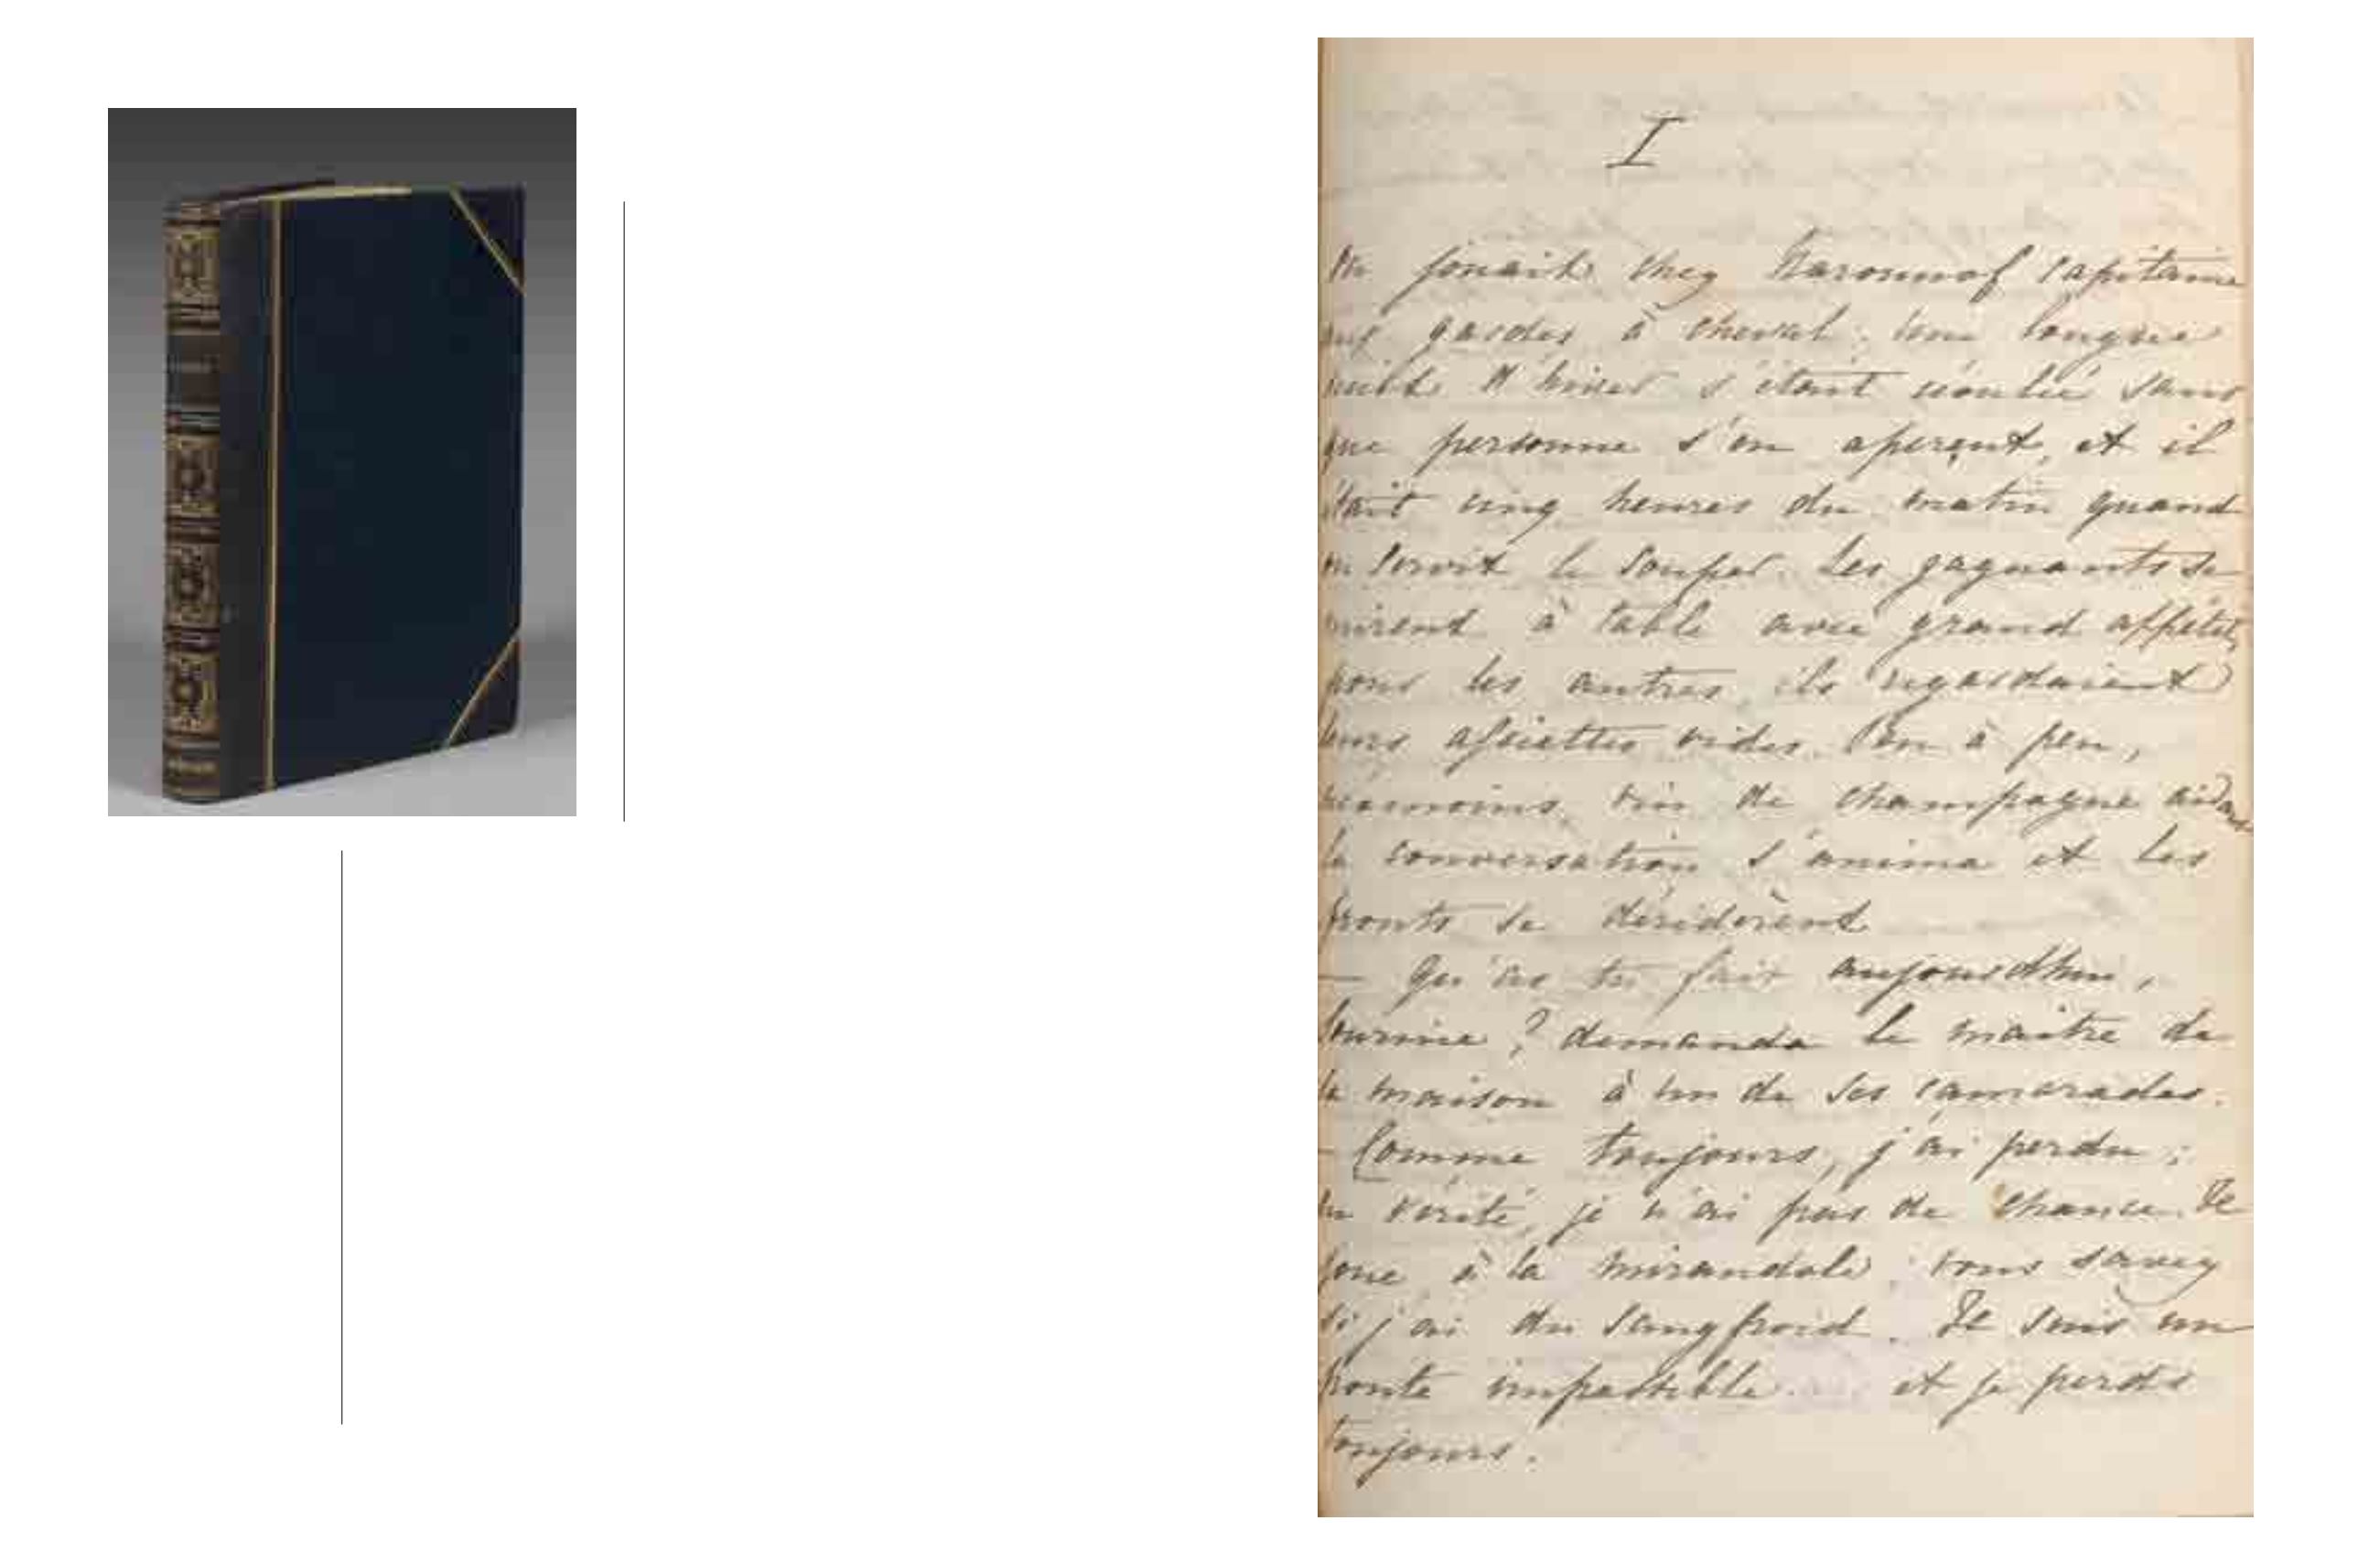 I
On jouait chez Naroumof capitaine
aux gardes à cheval; une longue
nuit d'hiver s'était écoulée sans
que personne s'en aperçut, et il
était cinq heures du matin quand
on servit le souper. Les gagnants se
mirent à table avec grand appétit;
pour les autres, ils regardaient
leurs assiettes vides. Peu à peu,
néanmoins, vin de champagne aidant
la conversation s'anima et les
fronts se déridèrent
— Qu'as tu fait aujourdhui,
Sourine? demanda le maître de
la maison à un de ses camarades.
- Comme toujours, j'ai perdu;
en vérité, je n'ai pas de chance. Je
joue à la mirandole; vous savez
si j'ai du sangfroid. Je suis un
ponte impassible et je perds
toujours.